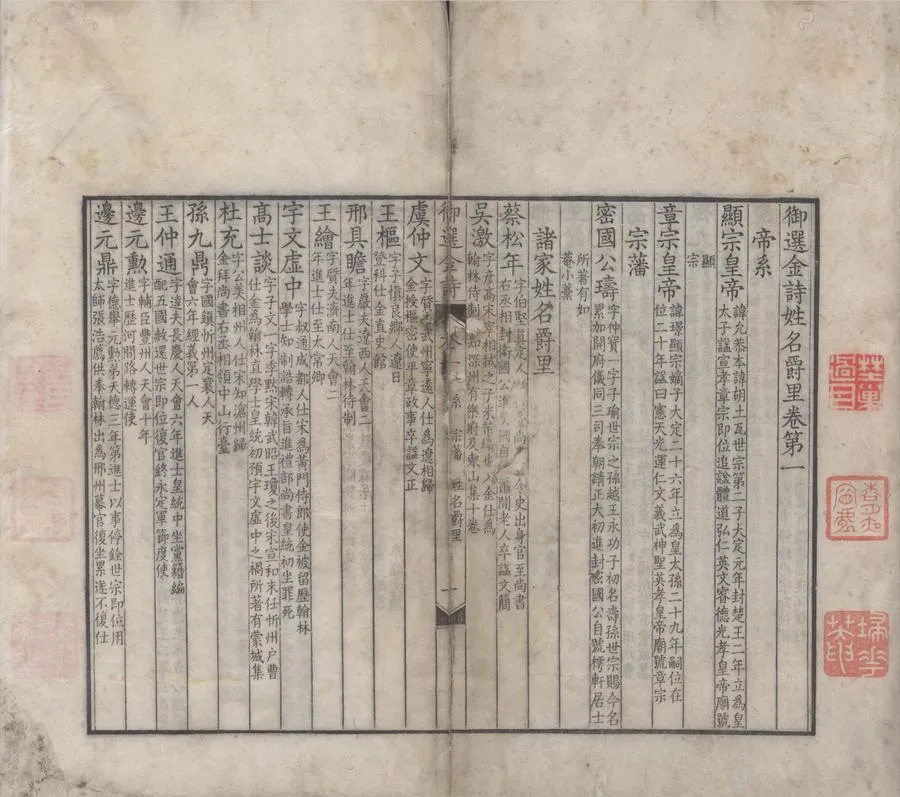 御選金詩姓名爵里卷第一
帝系
顯宗皇帝 諱允恭本諱胡土瓦世宗第二子大定元年封楚王二年立為皇
太子諡宣孝章宗即位追諡體道弘仁英文睿德光孝皇帝廟號
顯宗
章宗皇帝 諱璟顯宗嫡子大定二十六年立為皇太孫二十九年嗣位在
位二十年諡曰憲天光運仁文義武神聖英孝皇帝廟號章宗
宗藩
密國公璹 字仲寶一字子瑜世宗之孫越王永功子初名壽孫世宗賜今名
累加開府儀同三司奉朝請正大初進封密國公自號樗軒居士
所著有如
菴小藁
諸家姓名爵里
蔡松年 字伯堅真定人 令史出身官至尚書
右丞相封衛國公 蕭閒老人卒諡文簡
吳激 字彥高宋宰相拭之子米芾壻也 金仕為
翰林待制 知深州有樂府及東山集十卷
御選金詩 卷 系 宗藩 姓名爵里 一
虞仲文 字質夫武州寧遠人仕為遼相歸
金授樞密使平章政事卒諡文正
王樞 字子慎良鄉人遼日
登科仕金直史館
邢具瞻 字巖夫遼西人天會二
年進士仕至翰林待制
王繪 字質夫濟南人天會二
年進士仕至太常卿
宇文虛中 字叔通成都人仕宋為黃門侍郎使金被留歷翰林
學士知制誥轉承旨進禮部尚書皇統初坐罪死
高士談 字子文一字季默宋韓武昭王瓊之後宋宣和末任忻州户曹
仕金為翰林直學士皇統初預宇文虛中之禍所著有蒙城集
杜充 字公美相州人仕宋知滄州歸
金拜尚書右丞相領中山行臺
孫九鼎 字國鎮忻州定襄人天
會六年經義第一人
王仲通 字達夫長慶人天會六年進士皇統中坐黨籍編
配五國赦還世宗即位復官終永定軍節度使
邊元勲 字輔臣豐州人天會十年
進士歷河間路轉運使
邊元鼎 字德舉元勲弟天德三年第進士以事停銓世宗即位用
太師張浩薦供奉翰林出為邢州幕官復坐累遂不復仕